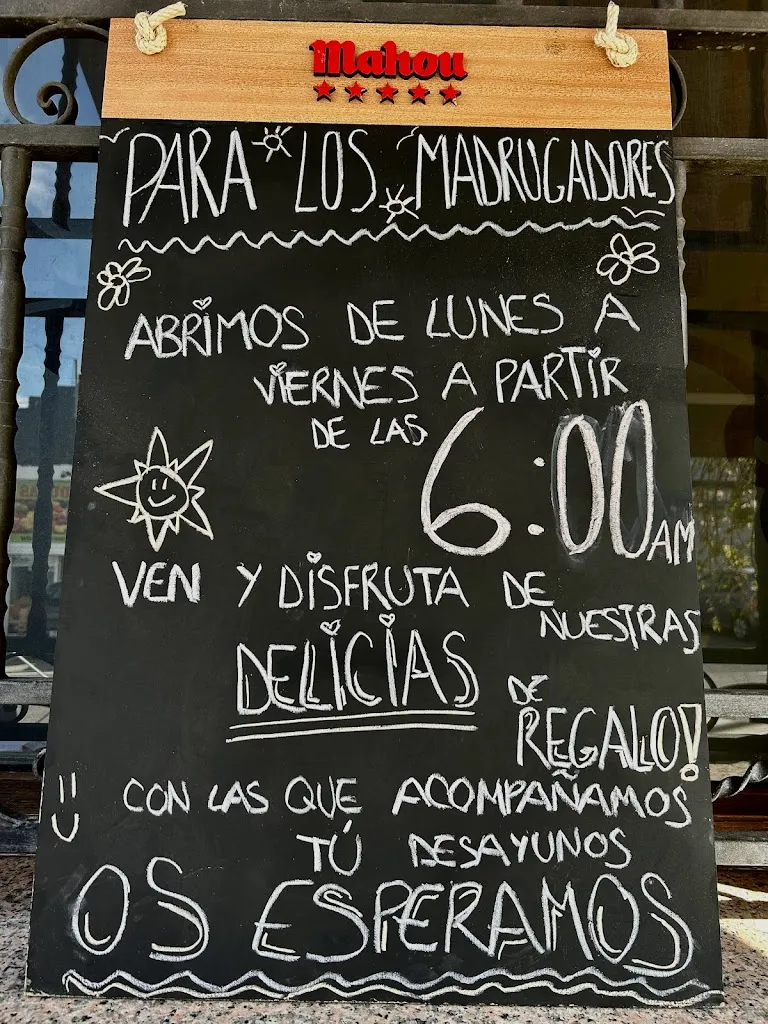 Mahou
PARA LOS MADRUGADORES
ABRIMOS DE LUNES A
VIERNES A PARTIR
DE LAS 6:00 AM
VEN Y DISFRUTA DE
NUESTRAS
DELICIAS DE
REGALO!
CON LAS QUE ACOMPAÑAMOS
TÚ DESAYUNOS
OS ESPERAMOS